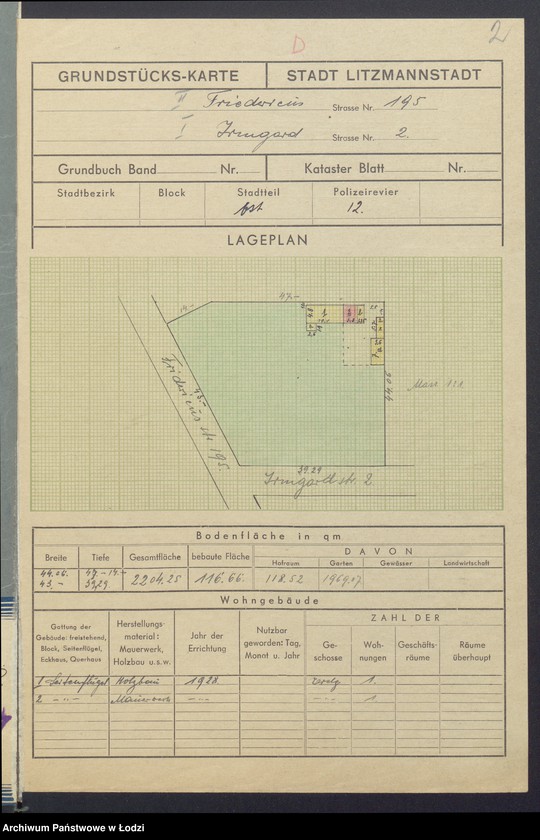 2
D
GRUNDSTÜCKS-KARTE STADT LITZMANNSTADT
II Friedericus Strasse Nr. 195
I Irmgard Strasse Nr. 2.
Grundbuch Band Nr. Kataster Blatt Nr.
Stadtbezirk Block Stadtteil Polizeirevier
Ost 12.
LAGEPLAN
47.-
14.-
43.-
44.06
Friedericus str 195.
39.29
Irmgard str. 2
Bodenfläche in qm
Breite Tiefe Gesamtfläche bebaute Fläche DAVON
Hofraum Garten Gewässer Landwirtschaft
44.06. 47.-14.-
43.- 39,29 2204.25 116.66. 118.52 1969.07
Wohngebäude
Gattung der Gebäude: freistehend, Block, Seitenflügel, Eckhaus, Querhaus
Herstellungsmaterial: Mauerwerk, Holzbau u.s.w.
Jahr der Errichtung
Nutzbar geworden: Tag, Monat u. Jahr
ZAHL DER
Geschosse Wohnungen Geschäftsräume Räume überhaupt
1 Seitenflügel Holzbau 1928 1.
2 -"- Mauerwerk -"- -"- 1
Archiwum Państwowe w Łodzi